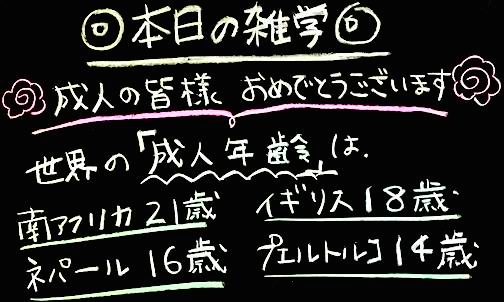 ◎本日の雑学◎
成人の皆様 おめでとうございます
世界の「成人年齢」は、
南アフリカ 21歳 イギリス 18歳
ネパール 16歳 プエルトルコ 14歳